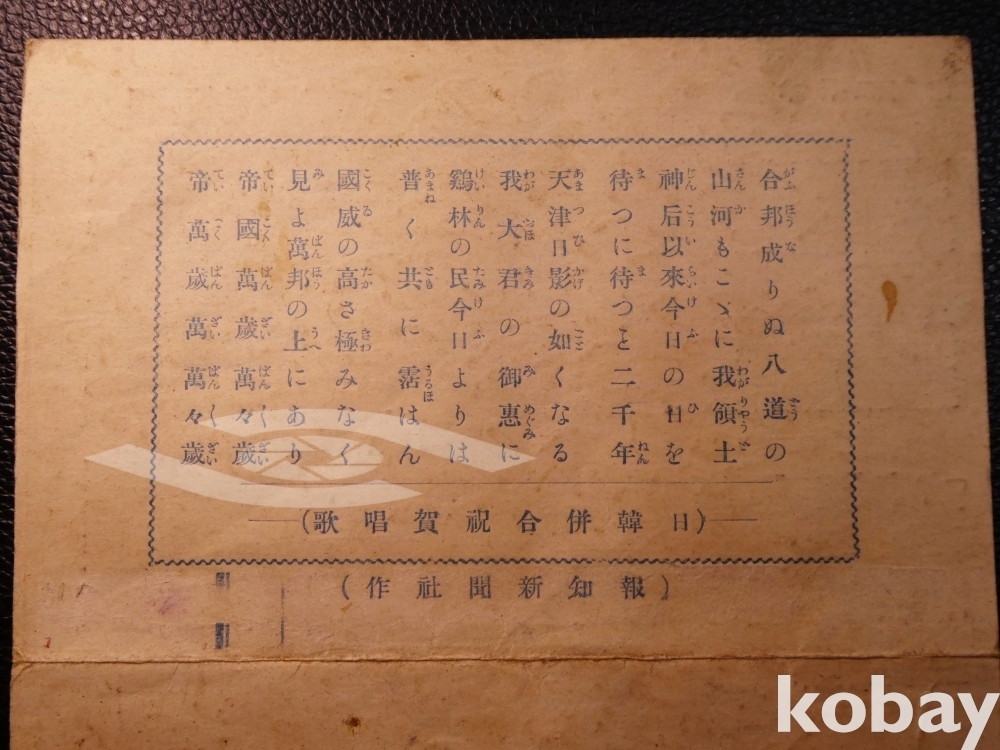 合邦成りぬ八道の
山河もこゝに我領土
神后以來今日の日を
待つに待つこと二千年
天津日影の如くなる
我大君の御惠に
鷄林の民今日よりは
普く共に霑はん
國威の高さ極みなく
見よ萬邦の上にあり
帝國萬歲萬々歲
帝萬歲萬萬々歲
(日韓併合祝賀唱歌)
(報知新聞社作)
kobay